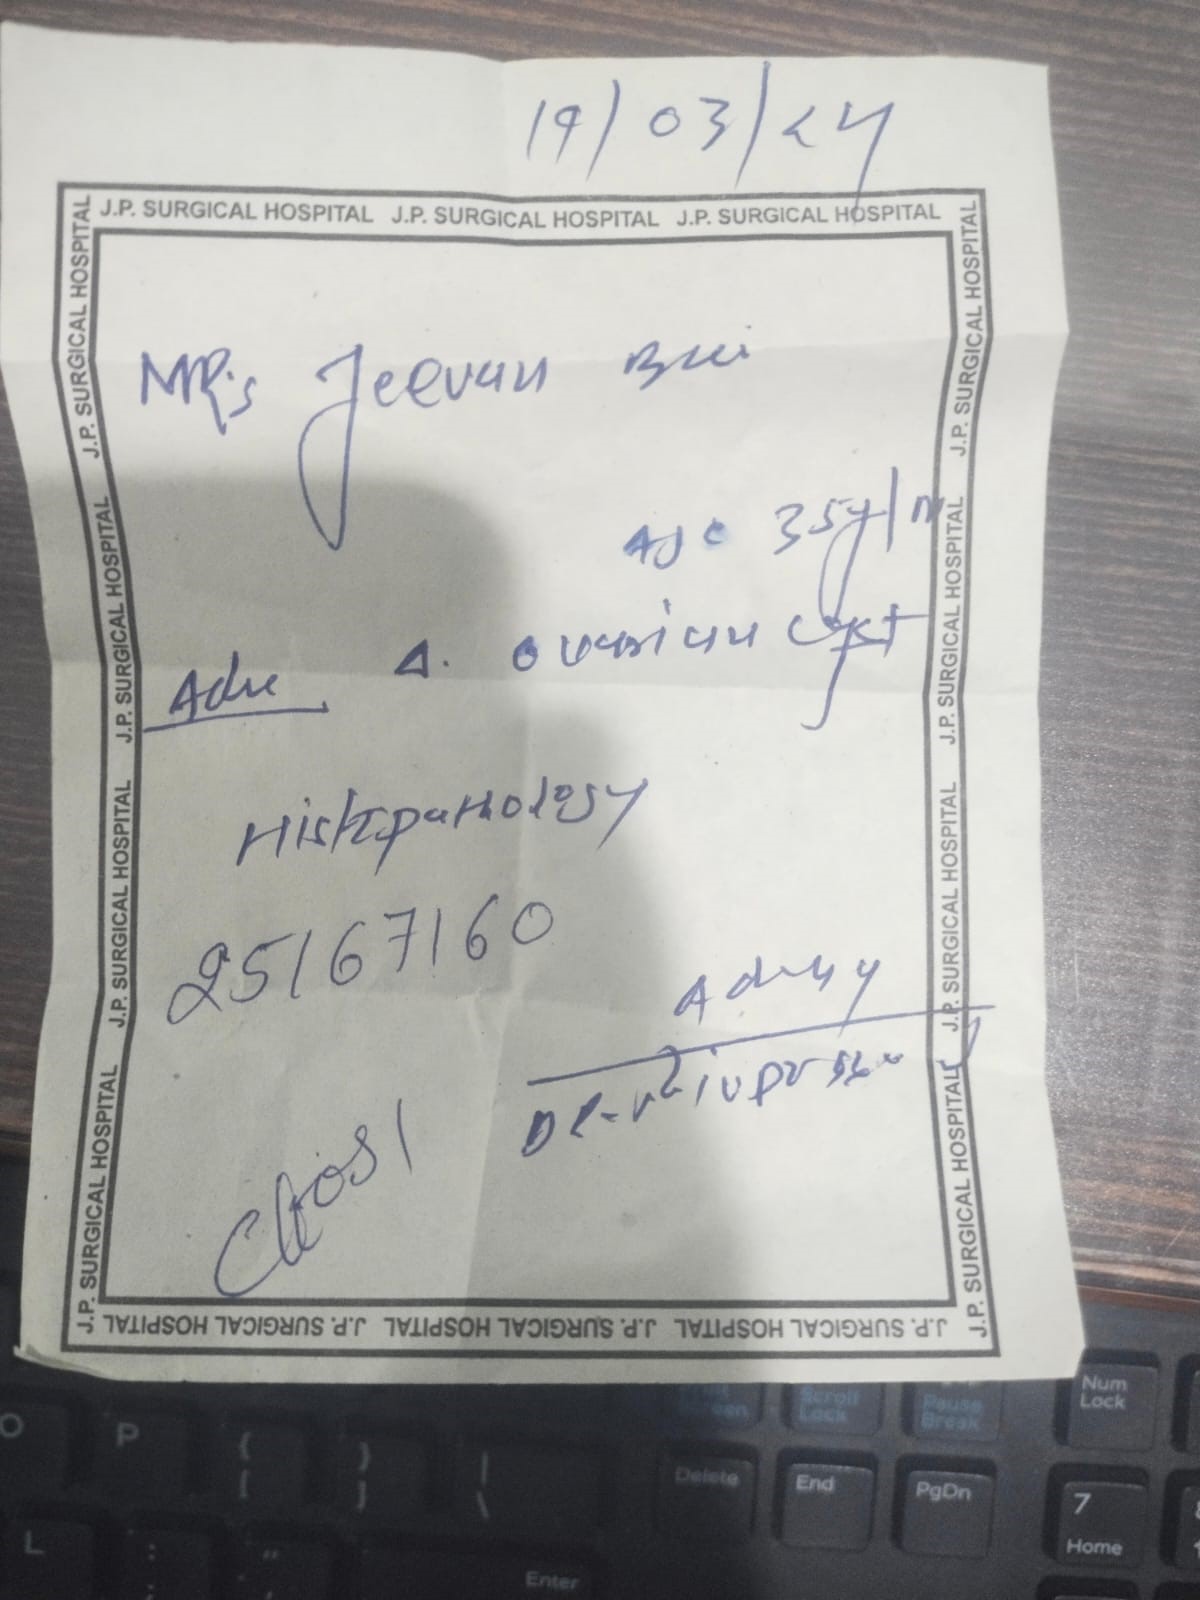 19/03/24
J.P. SURGICAL HOSPITAL J.P. SURGICAL HOSPITAL J.P. SURGICAL HOSPITAL
J.P. SURGICAL HOSPITAL J.P. SURGICAL HOSPITAL J.P. SURGICAL HOSPITAL J.P. SURGICAL HOSPITAL
J.P. SURGICAL HOSPITAL J.P. SURGICAL HOSPITAL J.P. SURGICAL HOSPITAL J.P. SURGICAL HOSPITAL
MRs Jeevan Bai
Age 35y/
Adv Δ. ovarian cyst
Histopathology
25167160
J.P. SURGICAL HOSPITAL J.P. SURGICAL HOSPITAL J.P. SURGICAL HOSPITAL
Scroll Lock
Pause Break
Num Lock
O P { [ } ] | \
Delete End PgDn 7 Home
L : ; "
Enter